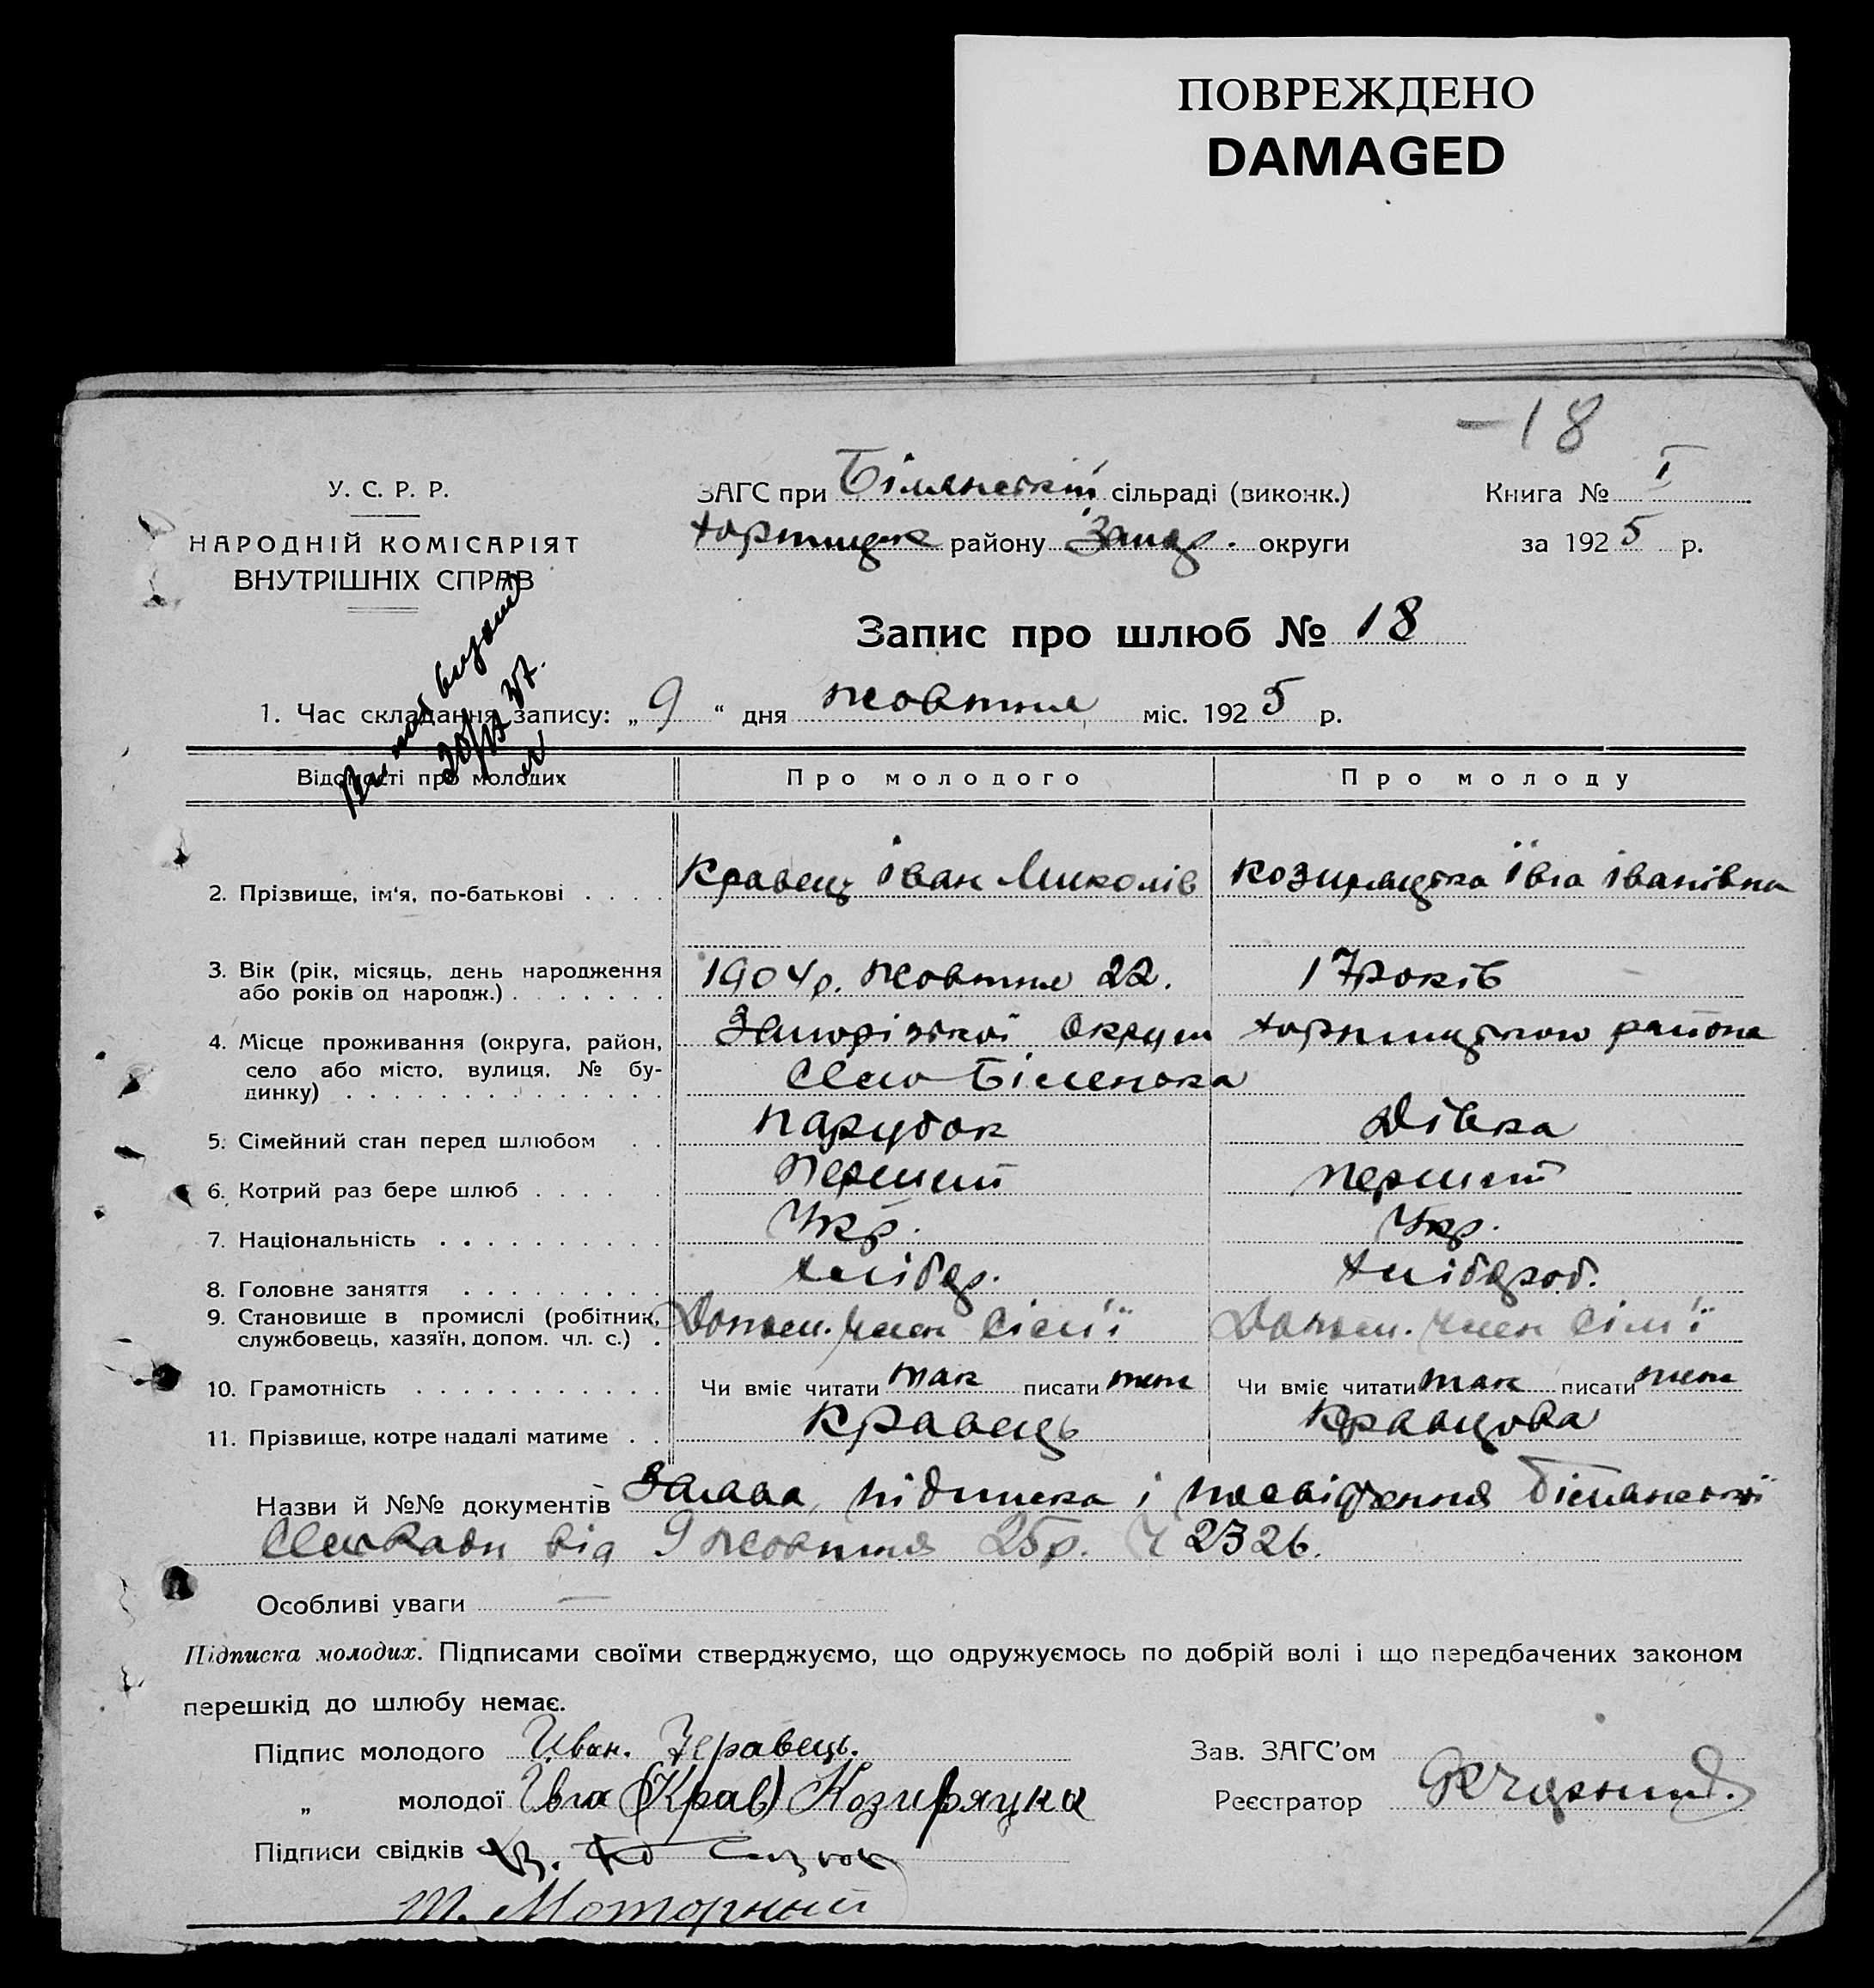 ПОВРЕЖДЕНО
DAMAGED
-18
У. С. Р. Р.
НАРОДНІЙ КОМІСАРІЯТ
ВНУТРІШНІХ СПРАВ
ЗАГС при Білянській сільраді (виконк.)
Хортицьк району Запор. округи
Книга № I
за 1925 р.
Запис про шлюб № 18
1. Час складання запису: „9“ дня жовтня міс. 1925 р.
Відомості про молодих
Про молодого
Про молоду
2. Прізвище, ім'я, по-батькові . . . . Кравець Іван Миколів Козиряцка Ївга Іванівна
3. Вік (рік, місяць, день народження 1904р. жовтня 22. 17 років
або років од народж.) . . . . . . .
4. Місце проживання (округа, район, Запорізької округи Хортицького района
село або місто, вулиця, № бу- Село Біленька
динку) . . . . . . . . . . . . . .
5. Сімейний стан перед шлюбом . . парубок Дівка
6. Котрий раз бере шлюб . . . . . перший перший
7. Національність . . . . . . . . . . Укр. Укр.
8. Головне заняття . . . . . . . . . хлібор. хлібороб.
9. Становище в промислі (робітник, Допом. член сім'ї Допом. член сім'ї
службовець, хазяїн, допом. чл. с.) .
10. Грамотність . . . . . . . . . . . Чи вміє читати так писати теж Чи вміє читати так писати теж
11. Прізвище, котре надалі матиме . . Кравець Кравцова
Назви й №№ документів Заява, підписка і посвідчення Білянської
СельРади від 9 жовтня 25р. Ч 2326.
Особливі уваги —
Підписка молодих. Підписами своїми стверджуємо, що одружуємось по добрій волі і що передбачених законом
перешкід до шлюбу немає.
Підпис молодого Иван. Кравець.
Зав. ЗАГС'ом
„ молодої Ивга (Крав) Козиряцка
Реєстратор
Підписи свідків
Т. Моторний